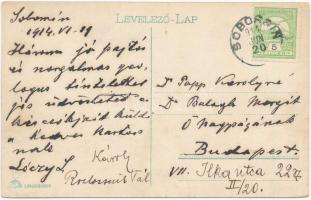 LEVELEZŐ-LAP
Soborsin
1914. VI. 19
Három jó pajtás
és szorgalmas geo-
logus tiszteletteljes
üdvözletét
kézcsókját küldi
kedves
nak
Lóczy L
Károly
Pál
SOBORSIN
914 JUN 20
Dr Papp Károlyné
Dr Balogh Margit
Ő nagyságának
Budapest.
VII. Ilka utca 22
II/20.